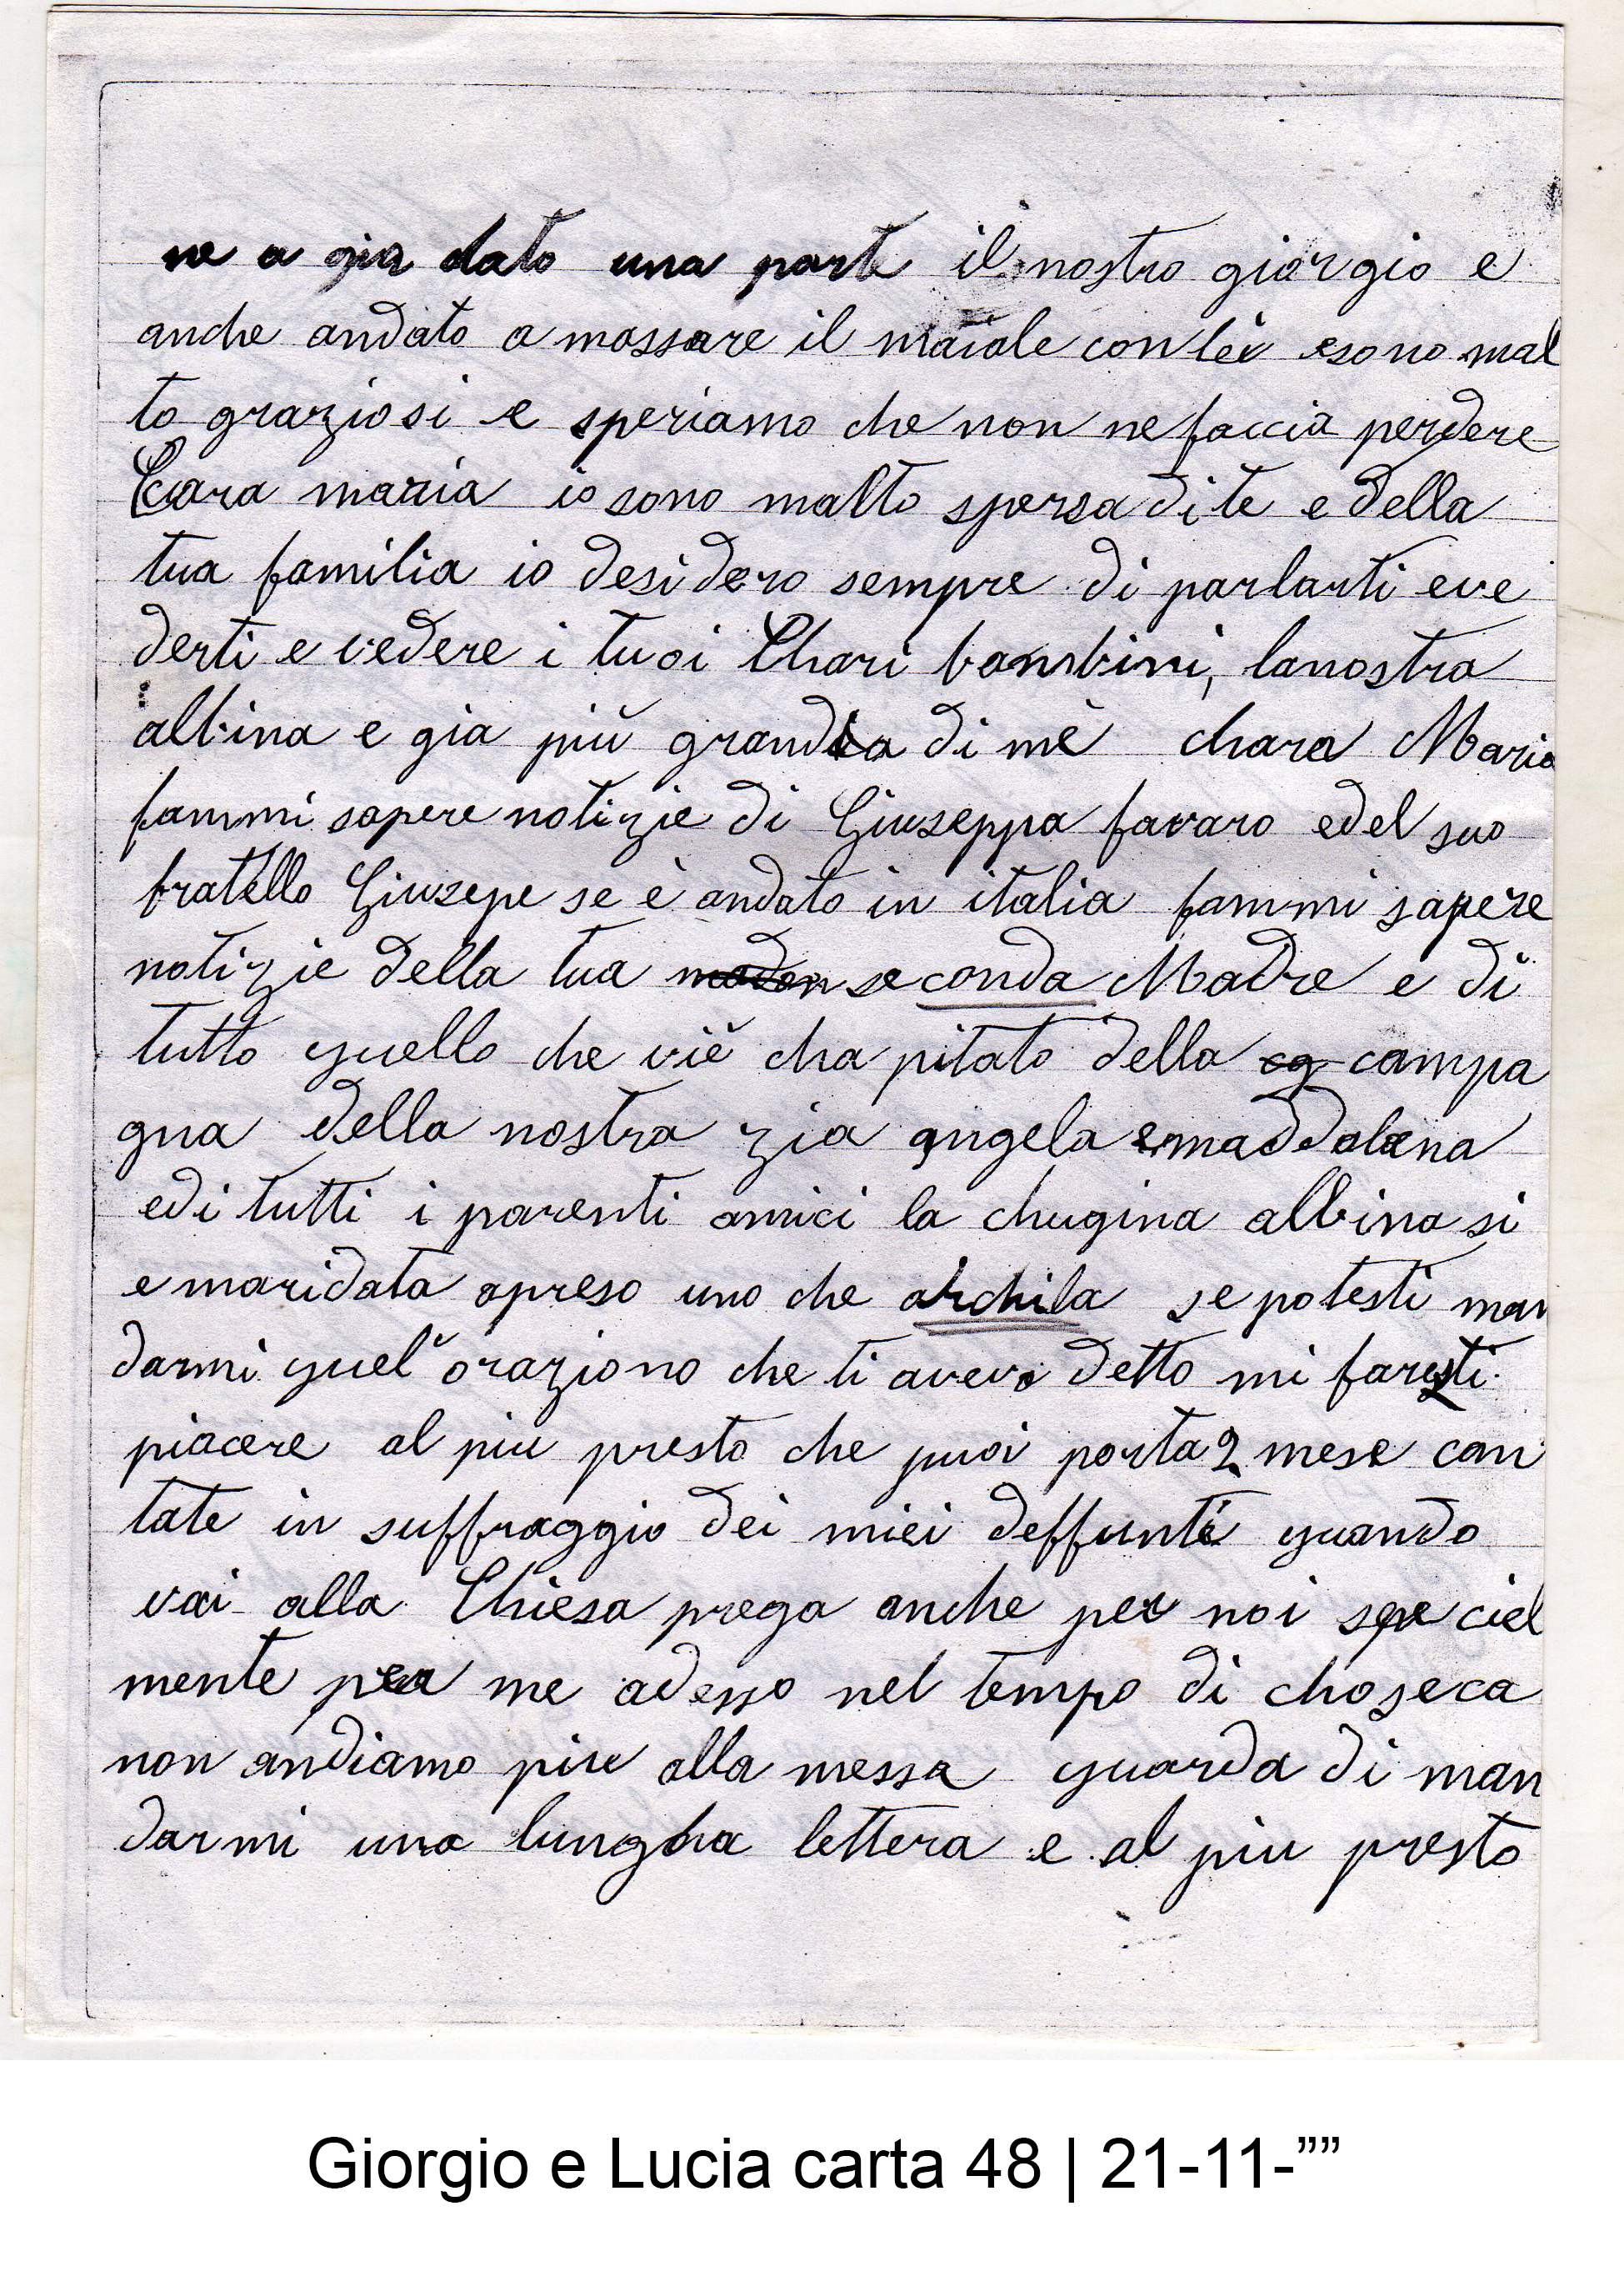 ne a gia dato una parte il nostro giorgio e
anche andato a massare il maiale con lei esono mal
to graziosi e speriamo che non ne faccia perdere
Ccara maria io sono malto spersa di te e della
tua familia io desidero sempre di parlarti eve
derti e vedere i tuoi Chari bambini, lanostra
albina e gia più granda di mè chara Maria
fammi sapere notizie di Giuseppa favaro edel suo
fratello Giusepe se è andato in italia fammi sapere
notizie della tua seconda Madre e di
tutto quello che viè chapitato della campa
gna della nostra zia angela e maddalena
edi tutti i parenti amici la chugina albina si
e maridata apreso uno che archila se potesti man
darmi quel'oraziono che ti avevo detto mi faresti
piacere al piu presto che puoi porta 2 mese can
tate in suffraggio dei miei deffunti quando
vai alla Chiesa prega anche per noi speciel
mente per me adesso nel tempo di choseca
non andiamo piu alla messa guarda di man
darmi una lungha lettera e al piu presto
Giorgio e Lucia carta 48 | 21-11-””